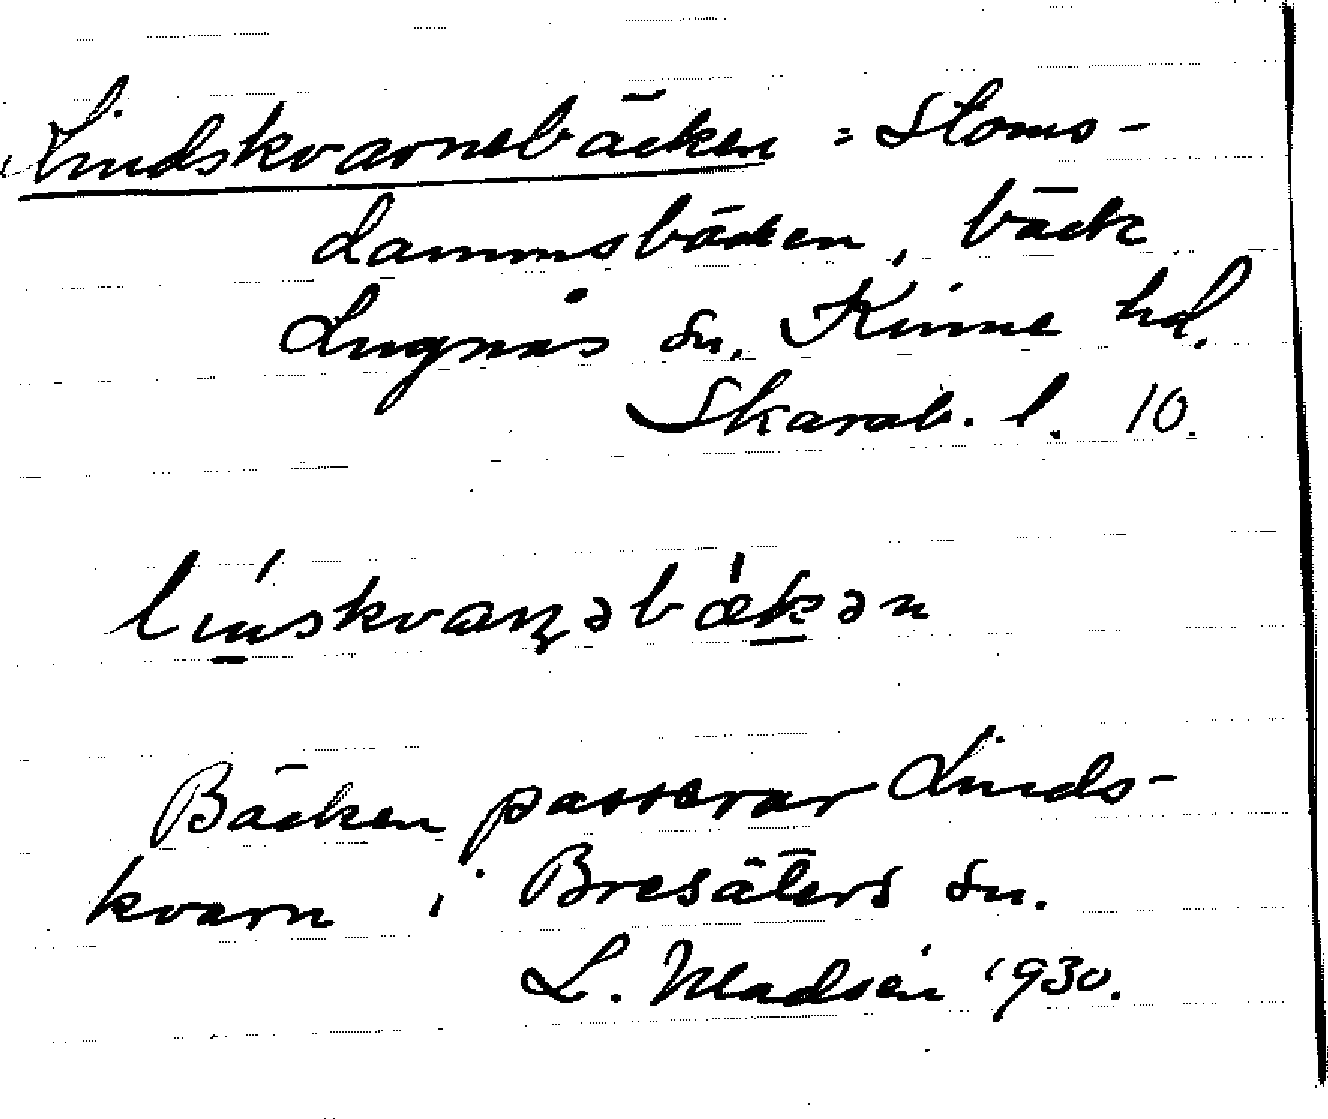 Lindskvarnebäcken = Stoms-
dammsbäcken, bäck
Lugnås sn, Kinne hd.
Skarab. l. 10.
li̱nskvaɳəbækən
Bäcken passerar Linds-
kvarn i Bresäters sn.
L. Madsén 1930.